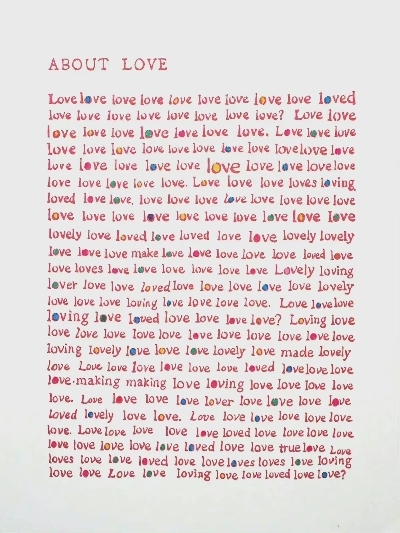 ABOUT LOVE
Love love love love love love love love love loved
love love love love love love love love? Love love
love love love love love love love. Love love love
love love love love love love love love love love love
love love love love love love love love love love
love love love love love. Love love love loves loving
loved love love. love love love love love love love
love love love love love love love love love love
lovely love loved love loved love love lovely lovely
love love love make love love love love love loved love
love loves love love love love love love Lovely loving
lover love love loved love love love love love lovely
love love love loving love love love love. Love love love
loving love loved love love love love? Loving love
love love love love love love love love love love love
loving lovely love love love lovely love made lovely
love Love love love love love love loved love love love
love. making making love loving love love love love
love. Love love love love lover love love love love
loved lovely love love. Love love love love love love
love. Love love love love love loved love love love love
love love love love love loved love love true love Love
loves love love loved love love loves loves love loving
love love Love love loving love love loved love love?